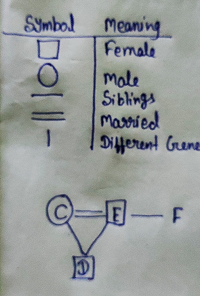 Symbol Meaning
Female
Male
Siblings
Married
Different Gene
C E F
D